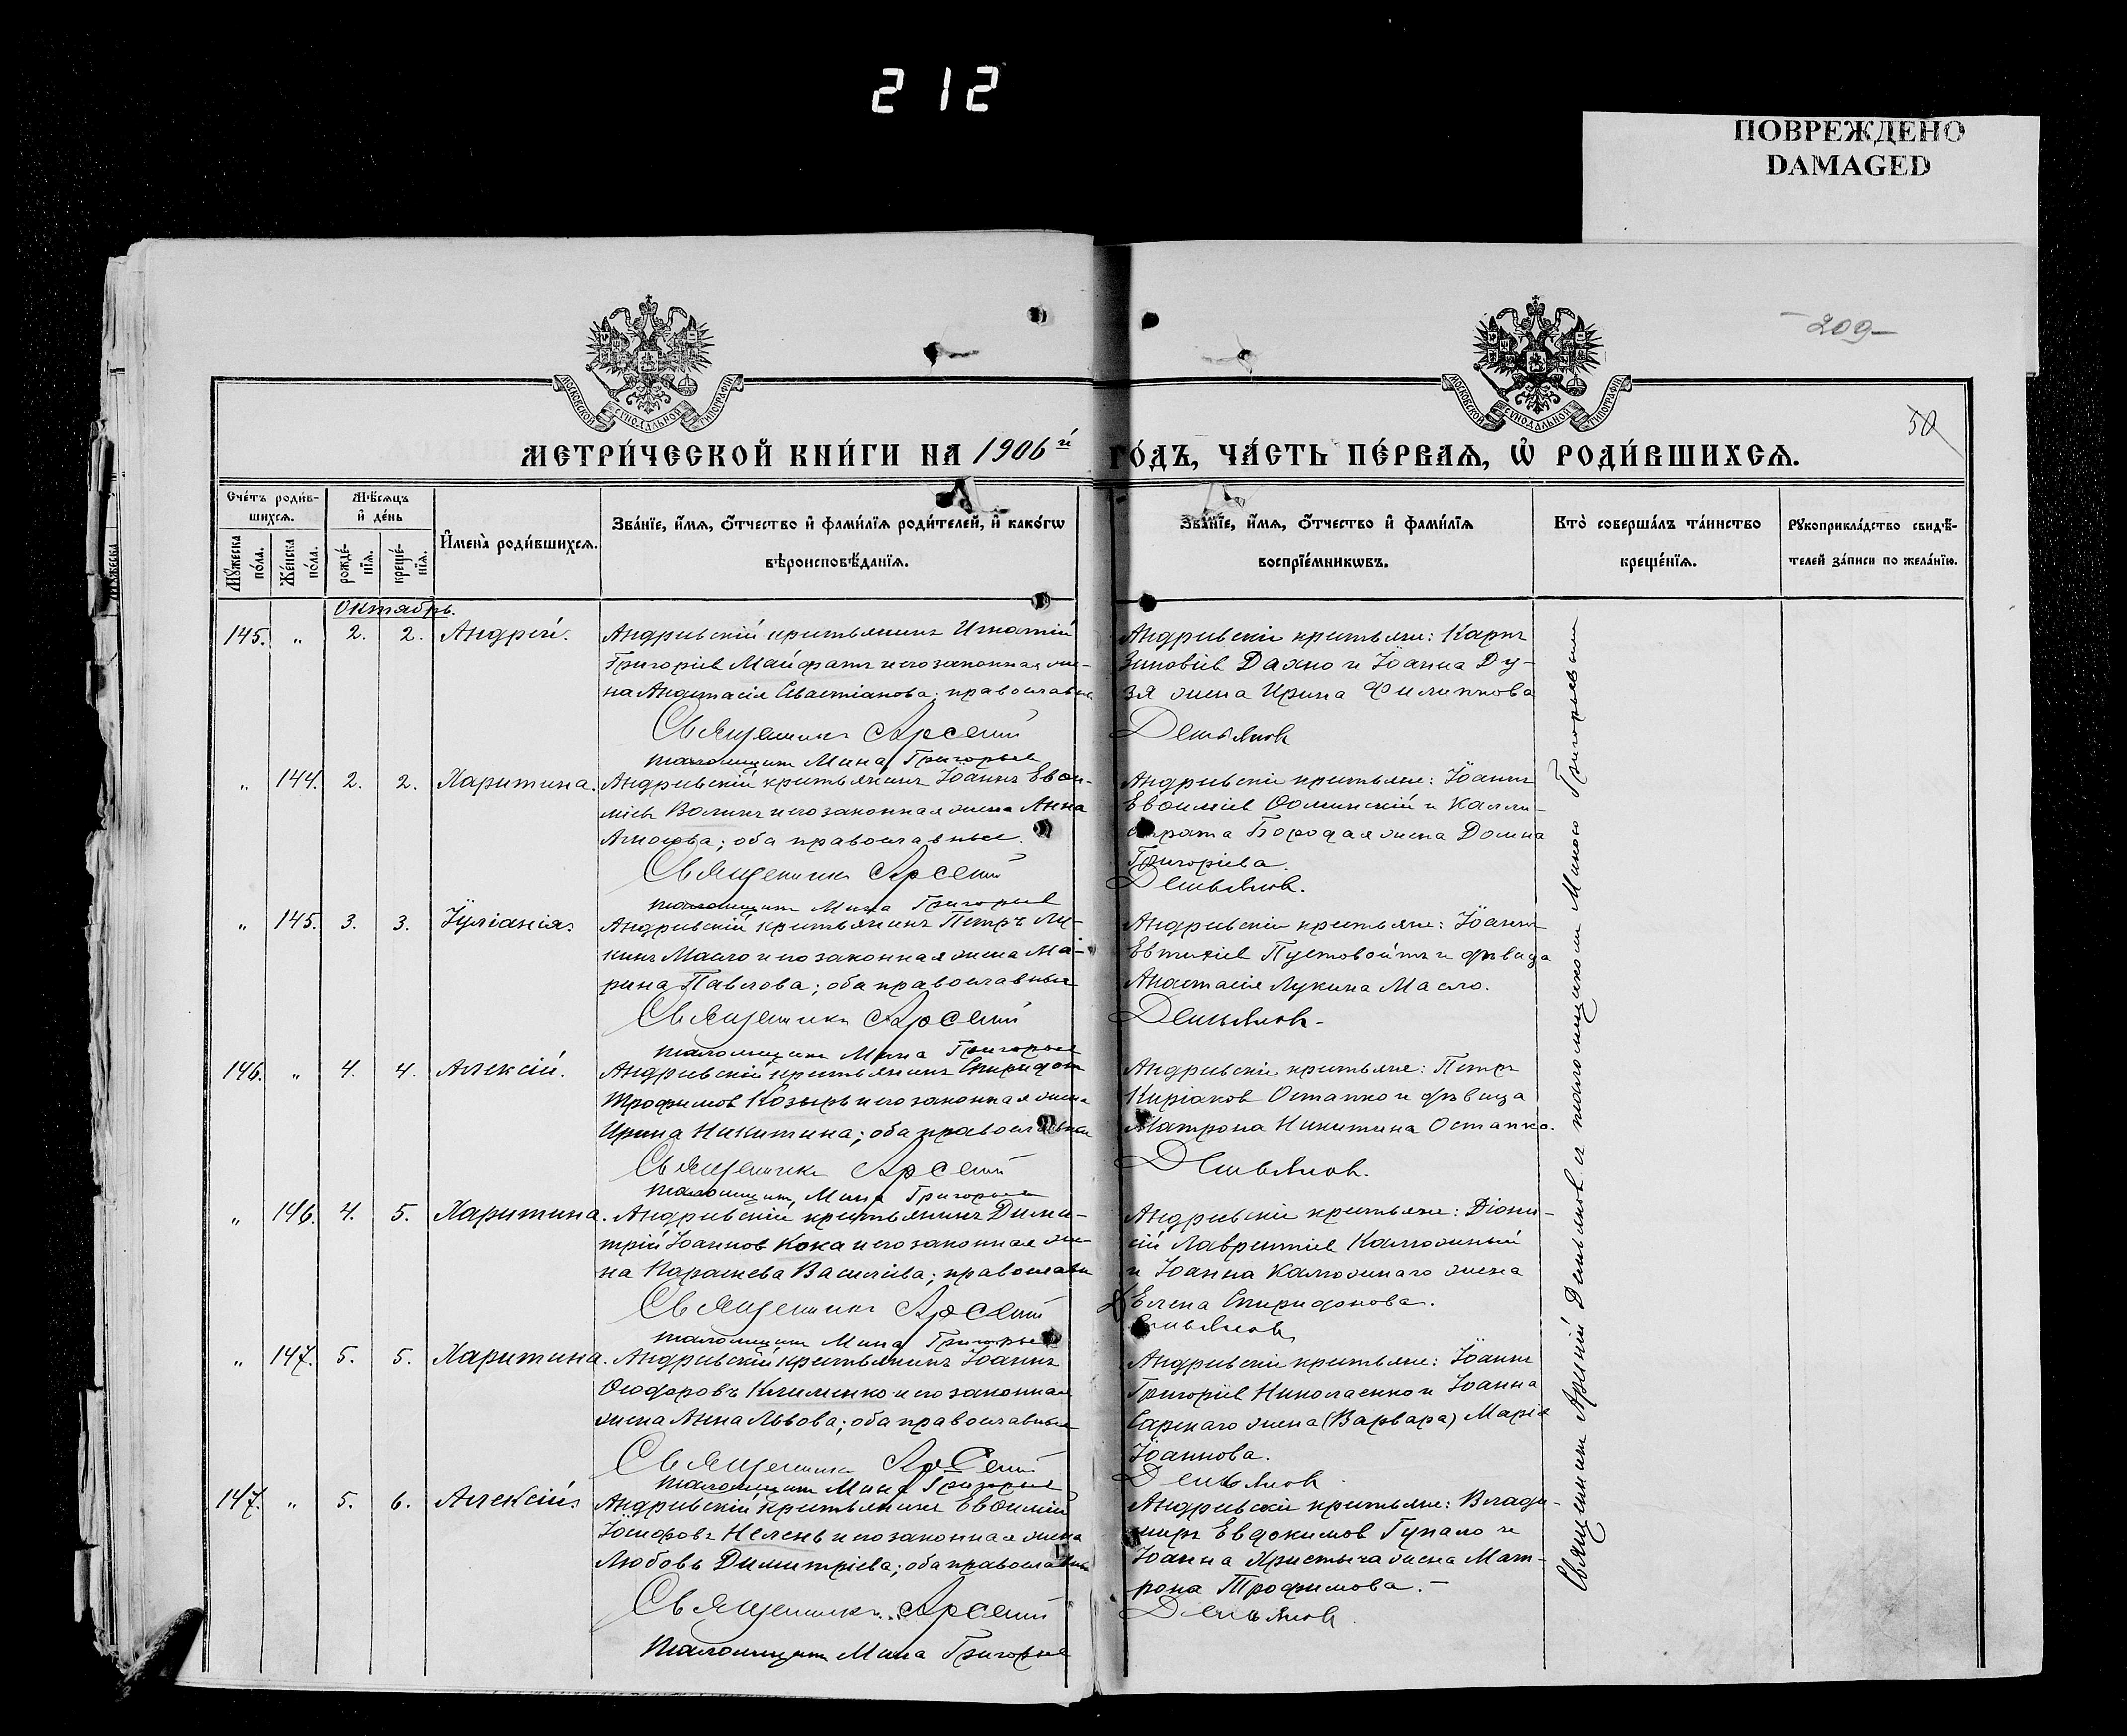 212
ПОВРЕЖДЕНО
DAMAGED
209
50
МОСКОВСКОЙ СѴНОДАЛЬНОЙ ТИПОГРАФІИ
МОСКОВСКОЙ СѴНОДАЛЬНОЙ ТИПОГРАФІИ
МЕТРИ́ЧЕСКОЙ КНИ́ГИ НА 1906й ГО́ДЪ, ЧА́СТЬ ПЕ́РВАѦ, Ѡ҆ РОДИ́ВШИХСѦ.
Сче́тъ роди́в-
шихсѧ.
Мѣ́сѧцъ
и҆ де́нь
Мꙋ́жеска по́ла.
Же́нска по́ла.
рожде́-
нїѧ.
креще́-
нїѧ.
И҆мена̀ роди́вшихсѧ.
Зва́нїе, и҆́мѧ, ѻ҆́тчество и҆ фами́лїѧ роди́телей, и҆ како́гѡ
вѣроисповѣ́данїѧ.
Зва́нїе, и҆́мѧ, ѻ҆́тчество и҆ фами́лїѧ
воспрїе́мникѡвъ.
Кто̀ соверша́лъ та́инство
креще́нїѧ.
Рꙋкоприкла́дство свидѣ́-
телей за́писи по жела́нїю.
Октябрь.
145. " 2. 2. Андрей.
Андреевскій крестьянинъ Игнатій
Григоріев Майфатъ и его законная же-
на Анастасія Севастіанова; православные
Священникъ Арсеній
Псаломщикъ Мина Григорьев
Андреевскіе крестьяне: Карпъ
Зиновіев Дахно и Іоанна Ду-
зя жена Ирина Филиппова
Демьянов
" 144. 2. 2. Харитина.
Андреевскій крестьянинъ Іоаннъ Евѳи-
міев Волинъ и его законная жена Анна
Амосова; оба православные.
Священникъ Арсеній
Псаломщикъ Мина Григорьев
Андреевскіе крестьяне: Іоаннъ
Евѳиміев Ѳоминскій и Калли-
страта Бородая жена Домна
Григоріева.
Демьянов.
" 145. 3. 3. Іуліанія.
Андреевскій крестьянинъ Петръ Лу-
кинъ Масло и его законная жена Ма-
рина Павлова; оба православные
Священникъ Арсеній
Псаломщикъ Мина Григорьев
Андреевскіе крестьяне: Іоаннъ
Евтихіев Пустовойтъ и дѣвица
Анастасія Лукина Масло.
Демьянов.
146. " 4. 4. Алексій.
Андреевскій крестьянинъ Спиридон
Трофимов Козырь и его законная жена
Ирина Никитина; оба православные
Священникъ Арсеній
Псаломщикъ Мина Григорьев
Андреевскіе крестьяне: Петръ
Киріаков Остапко и дѣвица
Матрона Никитина Остапко.
Демьянов.
" 146. 4. 5. Харитина.
Андреевскій крестьянинъ Дими-
трій Іоаннов Кока и его законная же-
на Параскева Василіева; православн
Священникъ Арсеній
Псаломщикъ Мина Григорьев
Андреевскіе крестьяне: Діони-
сій Лаврентіев Калюжный
и Іоанна Калюжнаго жена
Елена Спиридонова.
Демьянов
" 147. 5. 5. Харитина.
Андреевскій крестьянинъ Іоаннъ
Ѳеодоровъ Клименко и его законная
жена Анна Львова; оба православные
Священникъ Арсеній
Псаломщикъ Мина Григорьев
Андреевскіе крестьяне: Іоаннъ
Григоріев Николаенко и Іоанна
жена (Варвара) Марія
Іоаннова.
Демьянов
147. " 5. 6. Алексій
Андреевскій крестьянинъ Евѳимій
Іосифовъ Нелень и его законная жена
Любовь Димитріева; оба православные
Священникъ Арсеній
Псаломщикъ Мина Григорьев
Андреевскіе крестьяне: Влади-
миръ Евдокимов Гупало и
Іоанна Христыча жена Мат-
рона Трофимова.
Демьянов.
Священникъ Арсеній Демьянов съ псаломщикомъ Миною Григорьевым